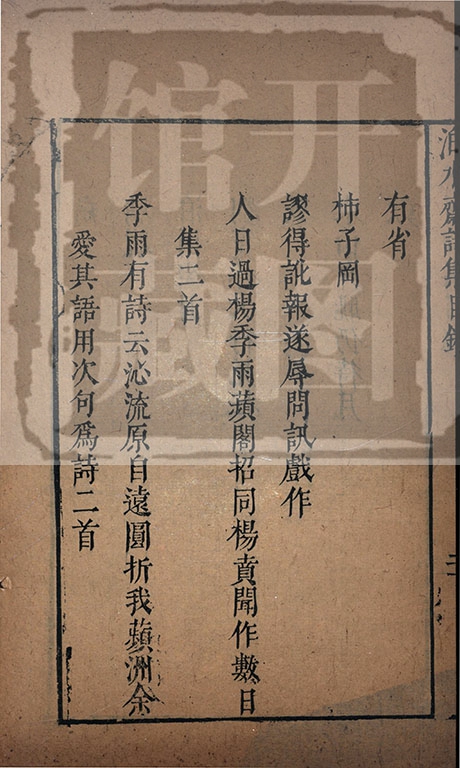 有省
柿子岡
謬得訛報遂辱問訊戲作
人日過楊季雨蘋閣招同楊賁聞作數日
集二首
季雨有詩云沁流原自遠圓折我蘋洲余
愛其語用次句爲詩二首
開图
馆藏
齋詩集目錄